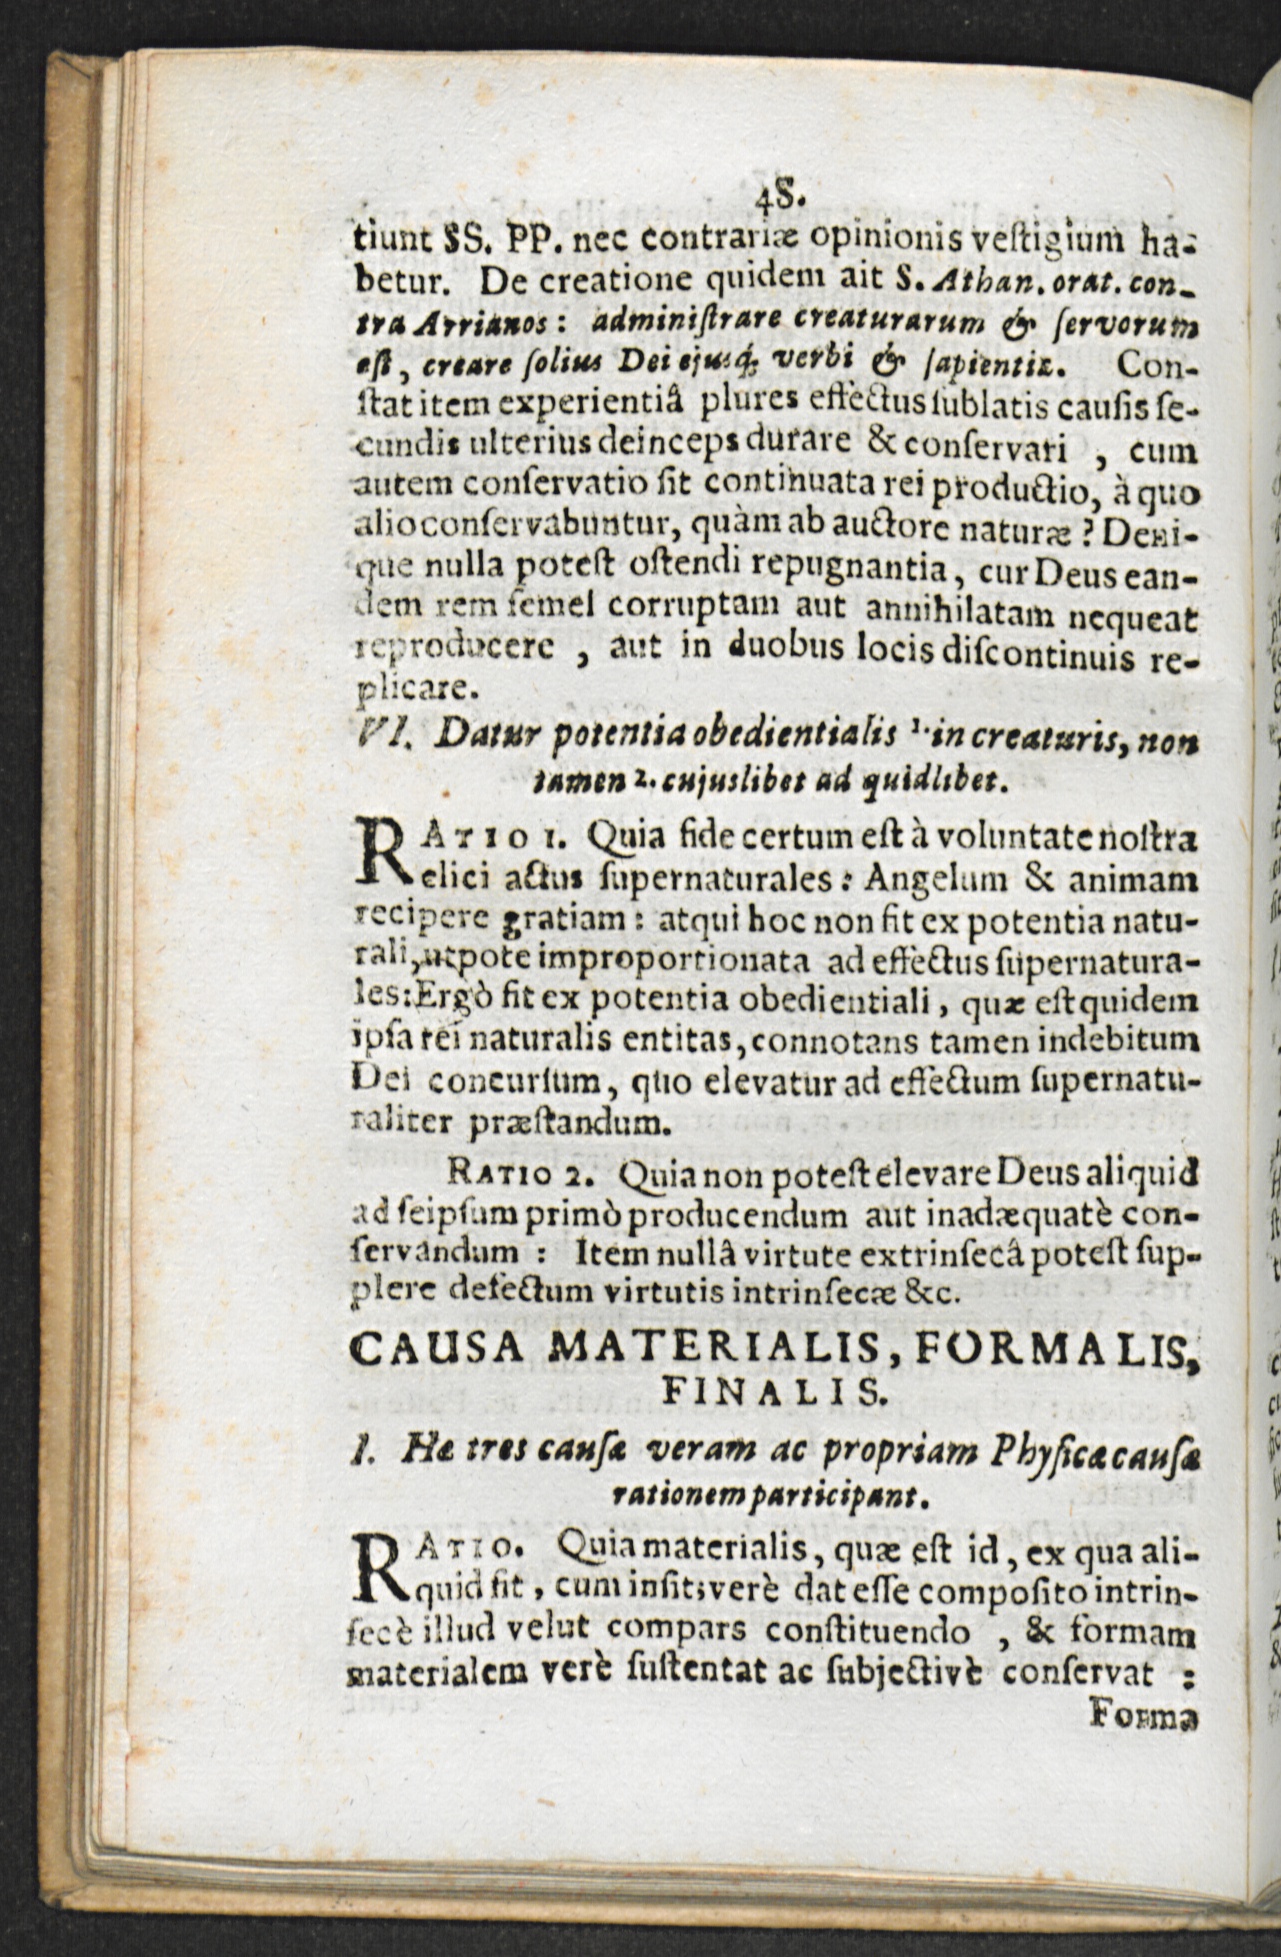 48.
tiunt SS. PP. nec contrariæ opinionis veſtigium ha-
betur. De creatione quidem ait S. Athan. orat. con-
tra Arrianos: adminiſtrare creaturarum & ſervorum
eſt, creare ſolius Dei ejusq; verbi & ſapientiæ. Con-
ſtat item experientiâ plures effectus ſublatis cauſis ſe-
cundis ulterius deinceps durare & conſervari, cum
autem conſervatio ſit continuata rei productio, à quo
alio conſervabuntur, quàm ab auctore naturæ? Deni-
que nulla poteſt oſtendi repugnantia, cur Deus ean-
dem rem ſemel corruptam aut annihilatam nequeat
reproducere, aut in duobus locis diſcontinuis re-
plicare.
VI. Datur potentia obedientialis 1. in creaturis, non
tamen 2. cujuslibet ad quidlibet.
RATIO 1. Quia fide certum eſt à voluntate noſtra
elici actus ſupernaturales: Angelum & animam
recipere gratiam: atqui hoc non fit ex potentia natu-
rali, utpote improportionata ad effectus ſupernatura-
les: Ergò fit ex potentia obedientiali, quæ eſt quidem
ipſa rei naturalis entitas, connotans tamen indebitum
Dei concurſum, quo elevatur ad effectum ſupernatu-
raliter præſtandum.
RATIO 2. Quia non poteſt elevare Deus aliquid
ad ſeipſum primò producendum aut inadæquatè con-
ſervandum: Item nullâ virtute extrinſecâ poteſt ſup-
plere defectum virtutis intrinſecæ &c.
CAUSA MATERIALIS, FORMALIS,
FINALIS.
I. Hæ tres cauſæ veram ac propriam Phyſicæ cauſæ
rationem participant.
RATIO. Quia materialis, quæ eſt id, ex qua ali-
quid fit, cum inſit; verè dat eſſe compoſito intrin-
ſecè illud velut compars conſtituendo, & formam
materialem verè ſuſtentat ac ſubjectivè conſervat:
Forma